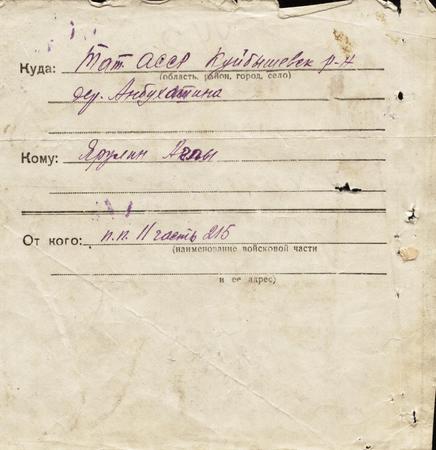 Куда: Тат. АССР Куйбышевск р-н
(область, район, город, село)
дер. Анбухатина
Кому: Ярулин Агзы
От кого: п.п. 11 часть 215
(наименование войсковой части
и ее адрес)